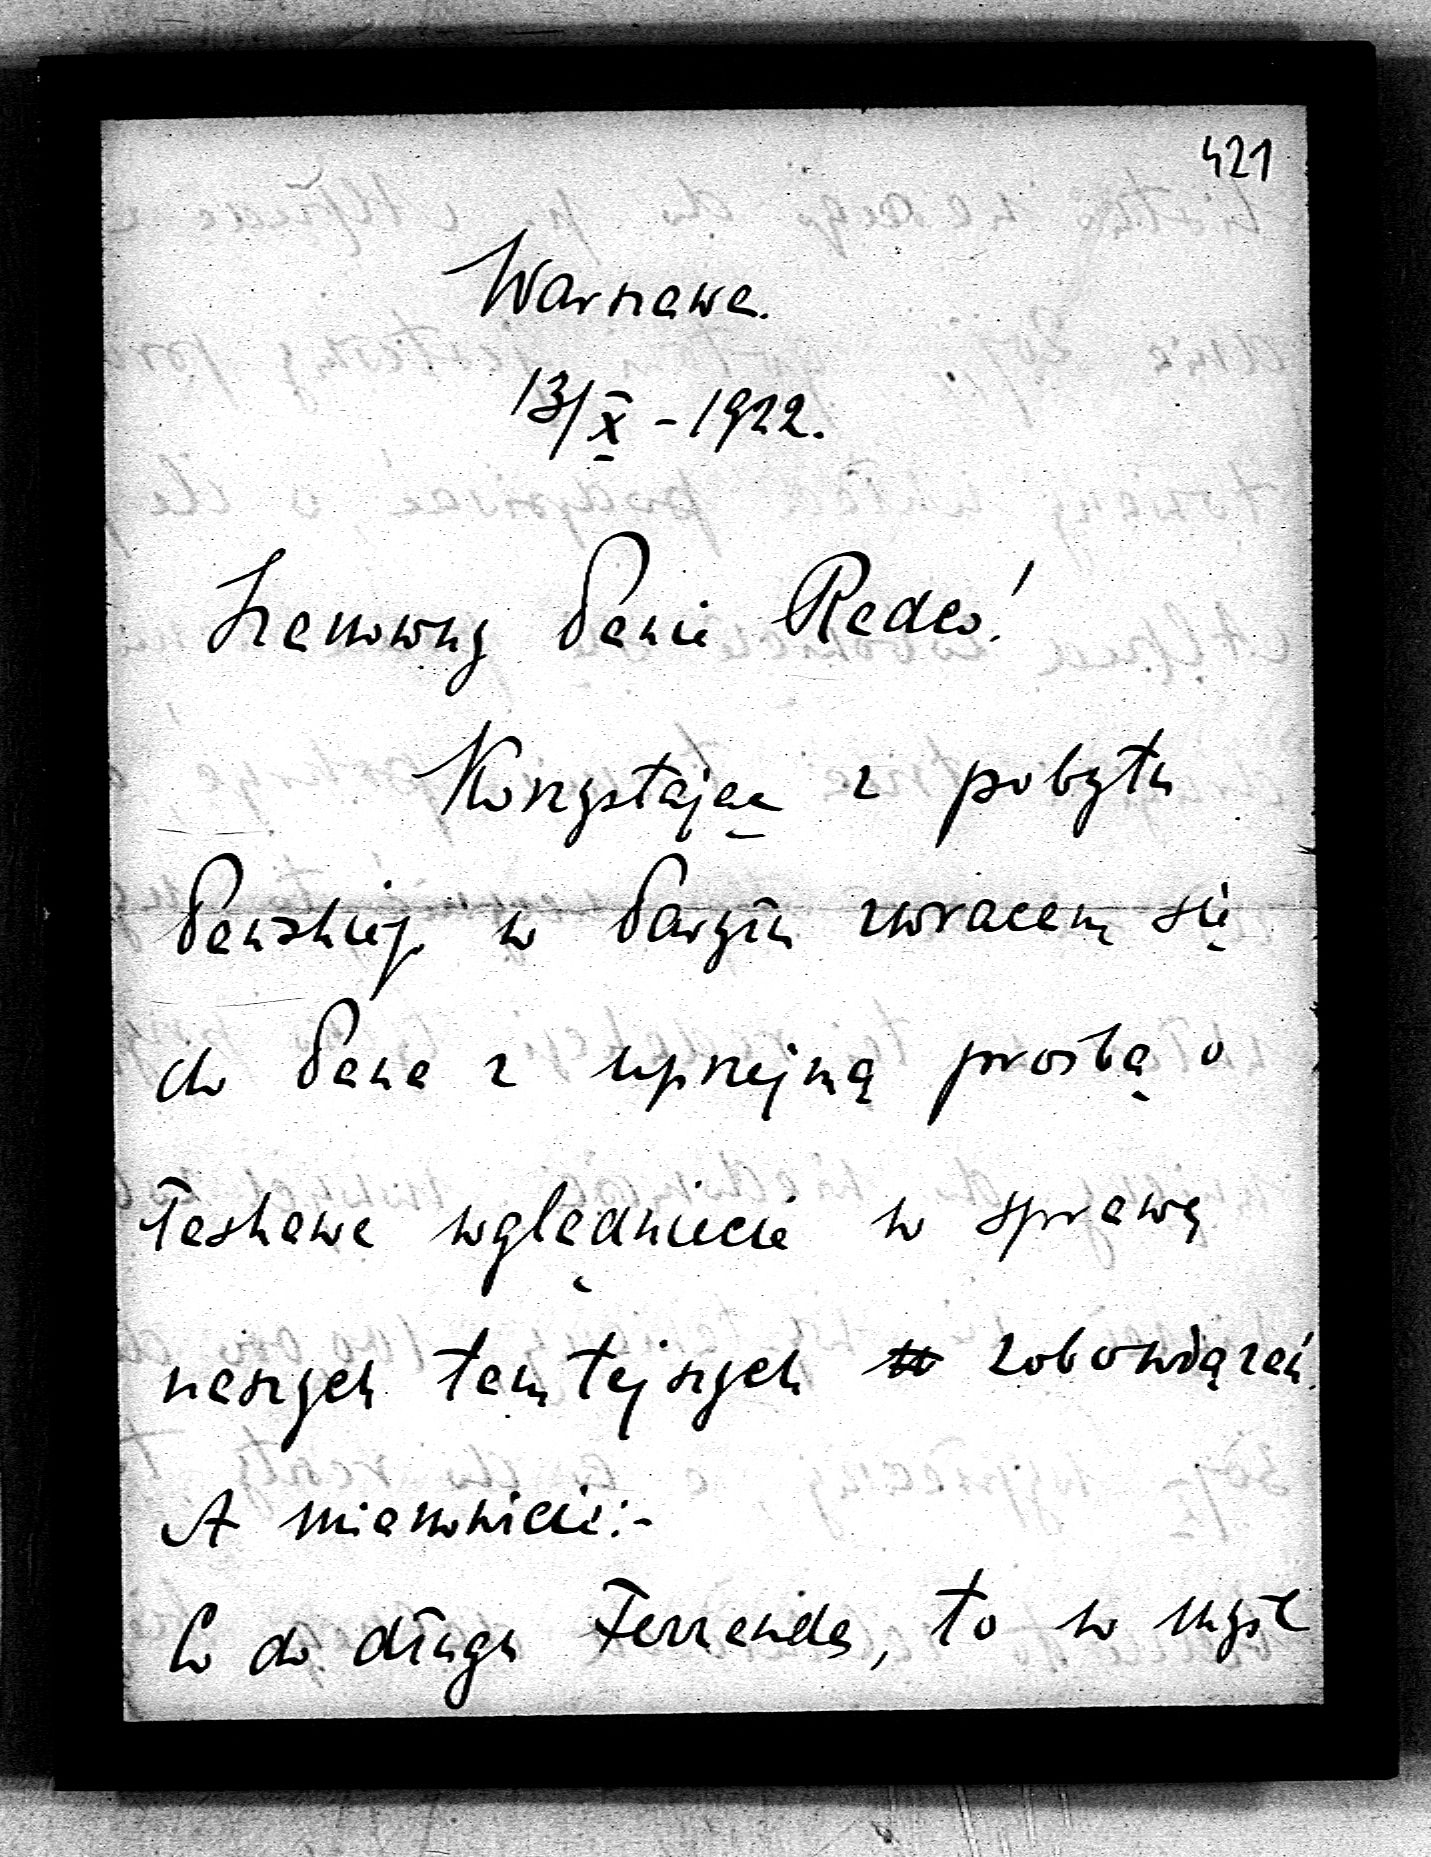 421
Warszawa.
13/X - 1922.
Szanowny Panie Radco!
Korzystając z pobytu
Pańskiej w Paryżu zwracam się
do Pana z uprzejmą prośbą o
łaskawe wglądniecie w sprawę
naszych tamtejszych zobowiązań.
A mianowicie:-
Co do długu Ferranda, to w myśl